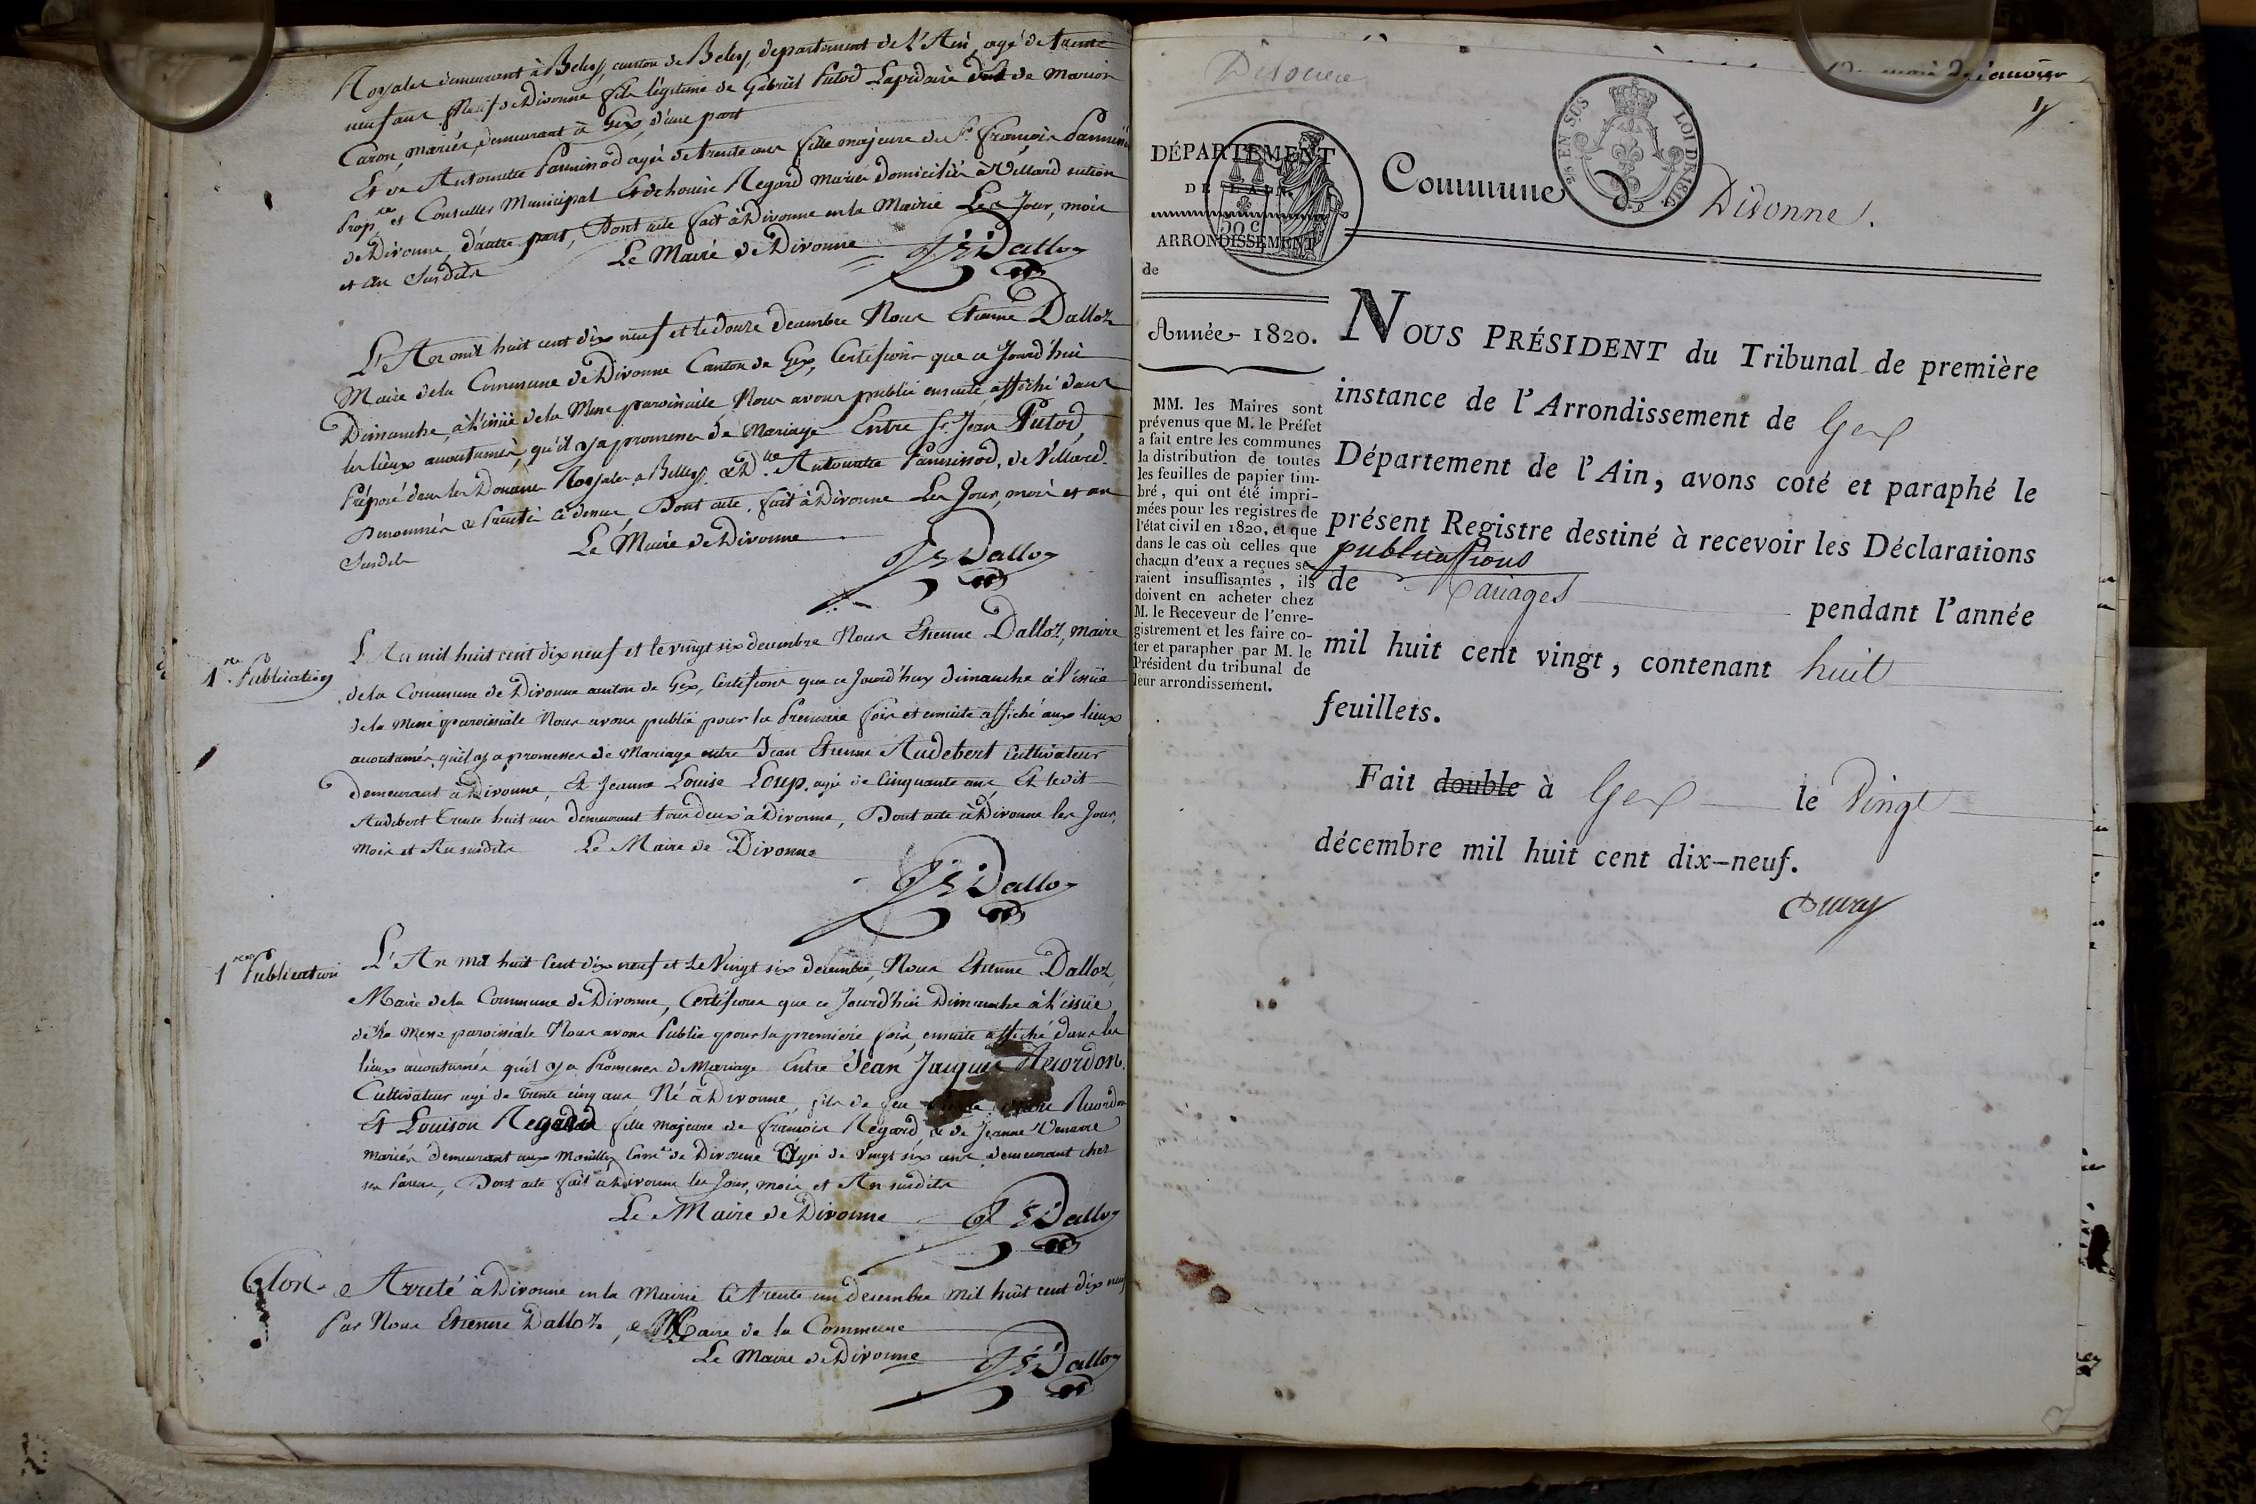 Royales demeurant à Beley, canton de Beley, departement de l'Ain, agé de trente
neuf ans natif de Divonne fils légitime de Gabriël Putod Lapidaire et de Marion
Caron, mariés, demeurant à Gex, d'une part
Et de Antoinette Panissod agée de trente ans fille majeure de Sr. François Panissod
Prop.re et Conseiller Municipal et de Regard mariés domiciliés à Villard section
de Divonne, d'autre part, Dont acte fait à Divonne en la Mairie Les Jour, mois
et An Susdits
Le Maire de Divonne
Dalloz
L'An mil huit cent dix neuf et le douze decembre Nous Etienne Dalloz
Maire de la Commune de Divonne Canton de Gex, Certifions que ce Jourd'hui
Dimanche, à l'issüe de la Messe paroissiale, Nous avons publié ensuite affiché dans
les lieux acoutumés, qu'il y a promesses de Mariage Entre Sr. Jean Putod,
Préposé dans les Douanes Royales a Belley et D.lle Antoinette Panissod, de Villard
Denommés et ci dessus, Dont acte, fait à Divonne Les Jour, mois et an
Susdits
Le Maire de Divonne
Dalloz
1.re Publication
L'An mil huit cent dix neuf et le vingt six decembre Nous Etienne Dalloz, maire
de la Commune de Divonne canton de Gex, Certifions que ce Jourd'huy dimanche à l'issüe
de la Messe paroissiale Nous avons publié pour la Premiere fois et ensuite affiché aux lieux
acoutumés, qu'il y a promesses de Mariage entre Jean Etienne Audebert Cultivateur
demeurant à Divonne, Et Jeanne Louise Loup, agée de Cinquante ans, Et ledit
Audebert trente huit ans demeurant tous deux à Divonne, Dont acte à Divonne les Jour,
mois et An susdits
Le Maire de Divonne
Dalloz
1 Publication
L'An mil huit Cent dix neuf et Le Vingt six decembre, Nous Etienne Dalloz,
Maire de la Commune de Divonne, Certifions que ce Jourd'hui Dimanche à l'issüe
de la Messe paroissiale Nous avons Publié pour la premiere fois, ensuite affiché dans les
lieux acoutumés qu'il y a Promesses de Mariage Entre Jean Jacques Recordon,
Cultivateur agé de Trente cinq ans Né à Divonne, fils de feu Recordon
Et Louison Regard fille majeure de François Regard, et de Jeanne
mariés demeurant aux Mouilles Com.e de Divonne Agée de Vingt six ans demeurant chez
ses Parens, Dont acte fait à Divonne les Jour, mois et An susdits
Le Maire de Divonne
Dalloz
Clos et Arreté à Divonne en la Mairie Le trente un decembre mil huit cent dix neuf
Par Nous Etienne Dalloz, Maire de la Commune
Le Maire de Divonne
Dalloz
janvier
1
DÉPARTEMENT
DE L'AIN.
ARRONDISSEMENT
de
50 c
25 EN SUS
LOI DE 1816
Commune de Divonne.
Année 1820.
MM. les Maires sont
prévenus que M. le Préfet
a fait entre les communes
la distribution de toutes
les feuilles de papier tim-
bré, qui ont été impri-
mées pour les registres de
l'état civil en 1820, et que
dans le cas où celles que
chacun d'eux a reçues se-
raient insuffisantes, ils
doivent en acheter chez
M. le Receveur de l'enre-
gistrement et les faire co-
ter et parapher par M. le
Président du tribunal de
leur arrondissement.
NOUS PRÉSIDENT du Tribunal de première
instance de l'Arrondissement de Gex
Département de l'Ain, avons coté et paraphé le
présent Registre destiné à recevoir les Déclarations
publications
de Mariages pendant l'année
mil huit cent vingt, contenant huit
feuillets.
Fait double à Gex le Vingt
décembre mil huit cent dix-neuf.